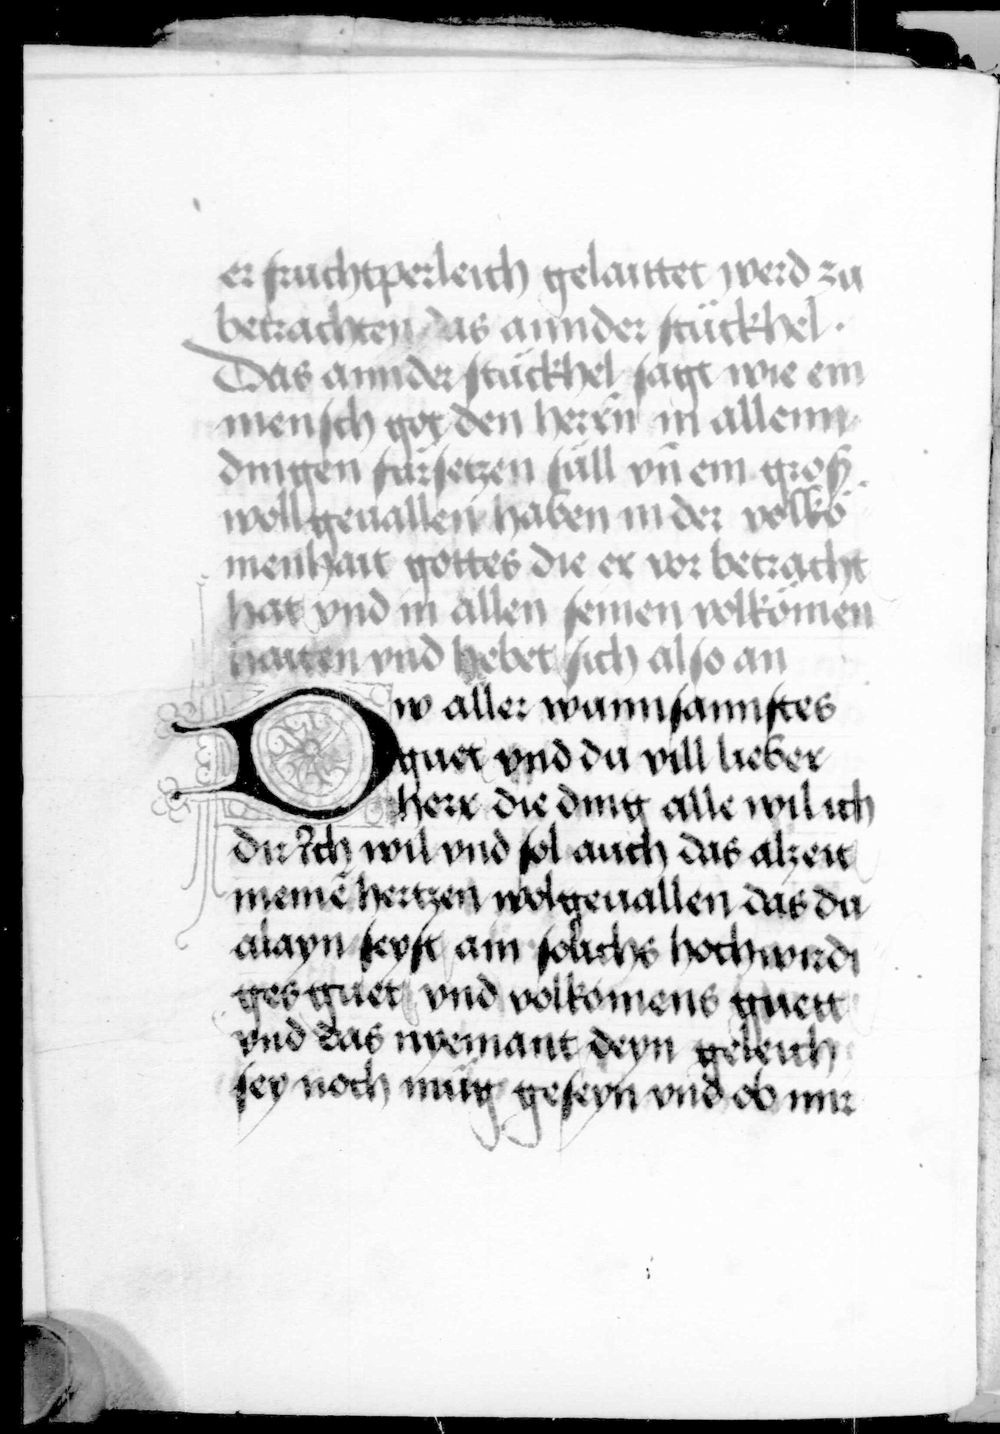 er fruchtperleich gelaittet werd zu
betrachten das annder stückhel ·
Das annder stückhel sagt wie ein
mensch got den herrn in allenn
dingen fürsetzen süll vn̄ ein groß
woll geuallen haben in der volkō
menhait gottes die er vor betracht
hat vnd in allen seinen volkōmen
haiten vnd hebet sich also an
Dw aller wunnsannstes
guet vnd du vill lieber
herr die ding alle wil ich
dir Ich wil vnd sol auch das alzeit
meinē hertzen wolgeuallen das du
alayn seyst ain solichs hochwirdi
ges guet vnd volkomens guett
vnd das nyemant deyn geleich
sey noch müg geseyn vnd ob mir